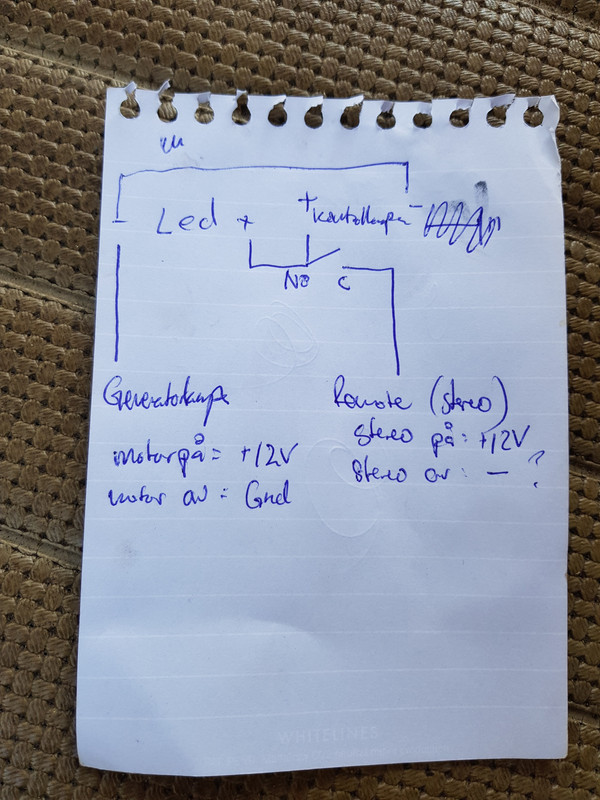 - Led + + Kontrollampa -
NO C
Generatorlampa
motor på = +12V
motor av = Gnd
Remote (stereo)
stereo på: +12V
stereo av: - ?
WHITELINES